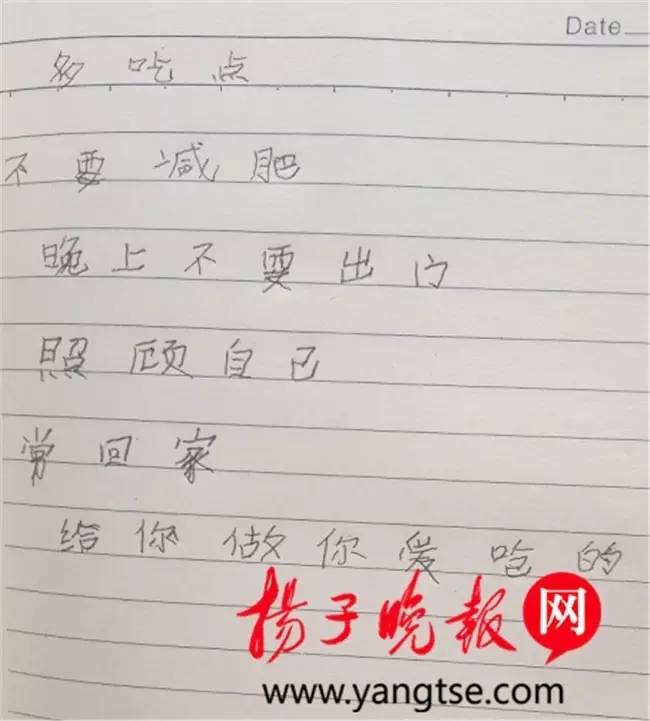 Date
多吃点
不要减肥
晚上不要出门
照顾自己
常回家
给你做你爱吃的
扬子晚报网
www.yangtse.com